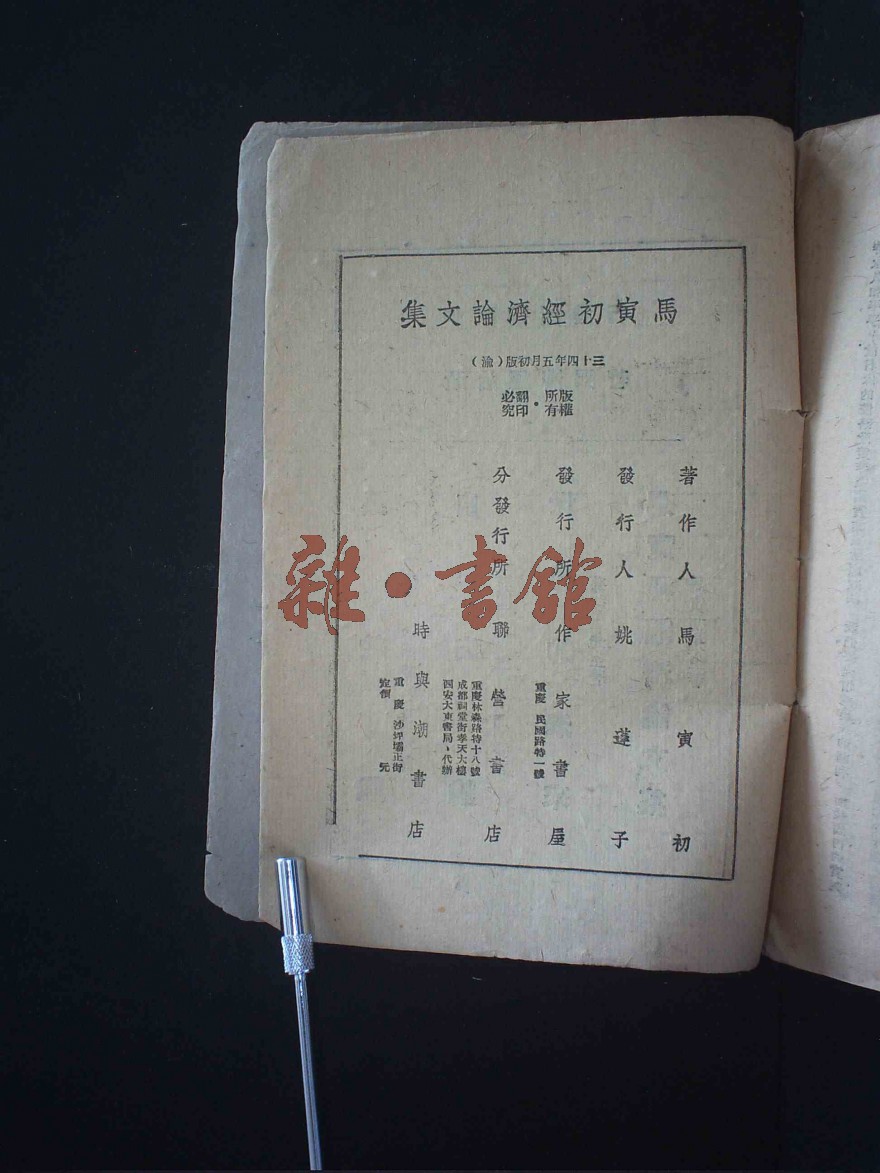 馬寅初經濟論文集
三十四年五月初版（渝）
版權所有・翻印必究
著作人 馬寅初
發行人 姚蓬子
發行所 作家書屋
重慶 民國路特一號
分發行所 聯營書店
重慶林森路特十八號
成都祠堂街孝天大樓
西安大東書局、代辦
時與潮書店
重慶 沙坪壩正街
定價 元
雜・書館